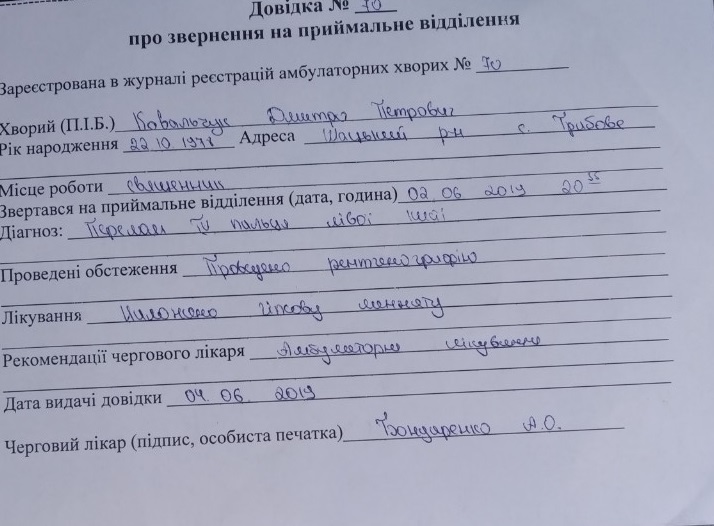 Довідка № 70
про звернення на приймальне відділення
Зареєстрована в журналі реєстрацій амбулаторних хворих № 70
Хворий (П.І.Б.) Ковальчук Дмитро Петрович
Рік народження 22 10 1978 Адреса Шацький рн с. Грабове
Місце роботи священник
Звертався на приймальне відділення (дата, година) 02 06 2019 20 55
Діагноз: Перелом IV пальця лівої
Проведені обстеження Проведено рентгенографію
Лікування Наложено гіпсову лонгету
Рекомендації чергового лікаря Амбулаторне лікування
Дата видачі довідки 04 06 2019
Черговий лікар (підпис, особиста печатка) Бондаренко А.О.